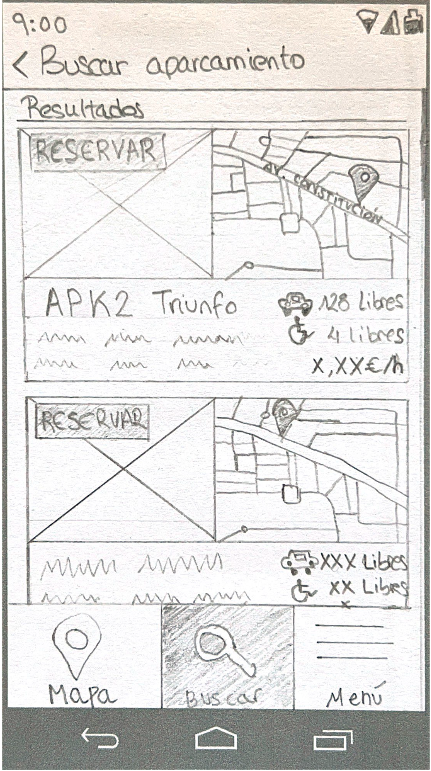 9:00
< Buscar aparcamiento
Resultados
RESERVAR
AV. CONSTITUCIÓN
APK2 Triunfo
128 Libres
4 Libres
X,XX€/h
RESERVAR
XXX Libres
XX Libres
Mapa
Buscar
Menú